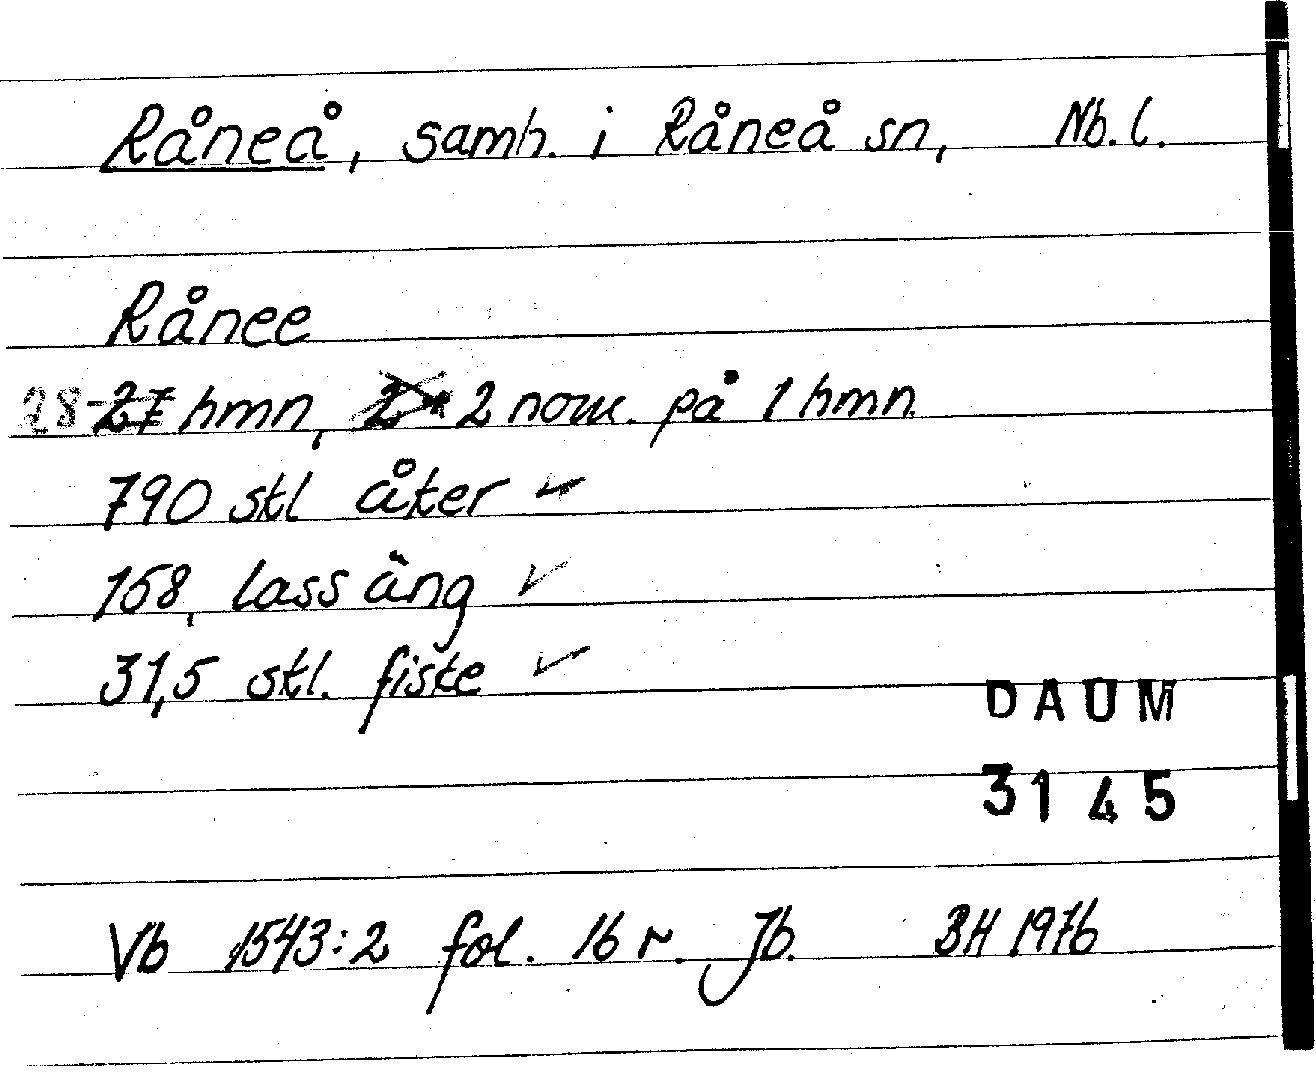 Råneå, samh. i Råneå sn, Nb. l.
Rånee
28 27 hmn, 2 namn på 1 hmn
790 stl åker ✓
168, lass äng ✓
31,5 stl. fiske ✓
DAUM
3145
Vb 1543:2 fol. 16 r. Jb. BH 1976